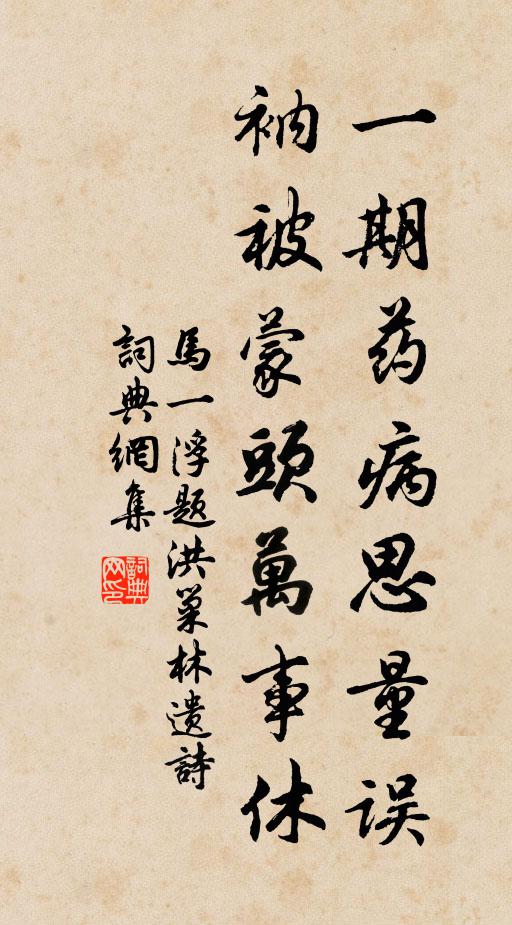 一期药病思量误
衲被蒙頭萬事休
馬一浮題洪巢林遗詩
詞典網集
詞典网印